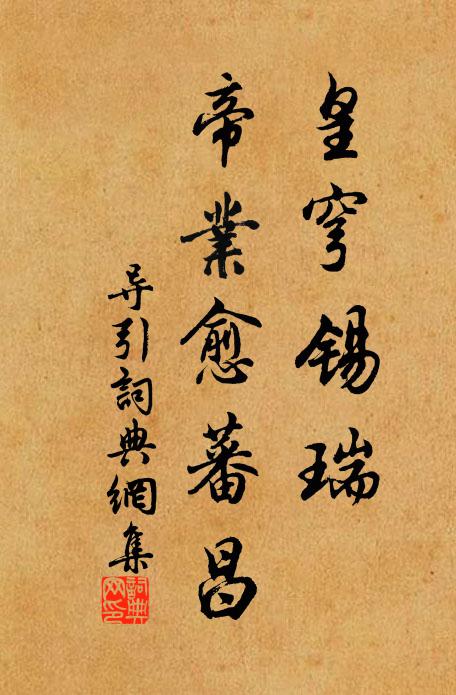 皇穹锡瑞
帝業愈蕃昌
导引詞典網集
詞典网印